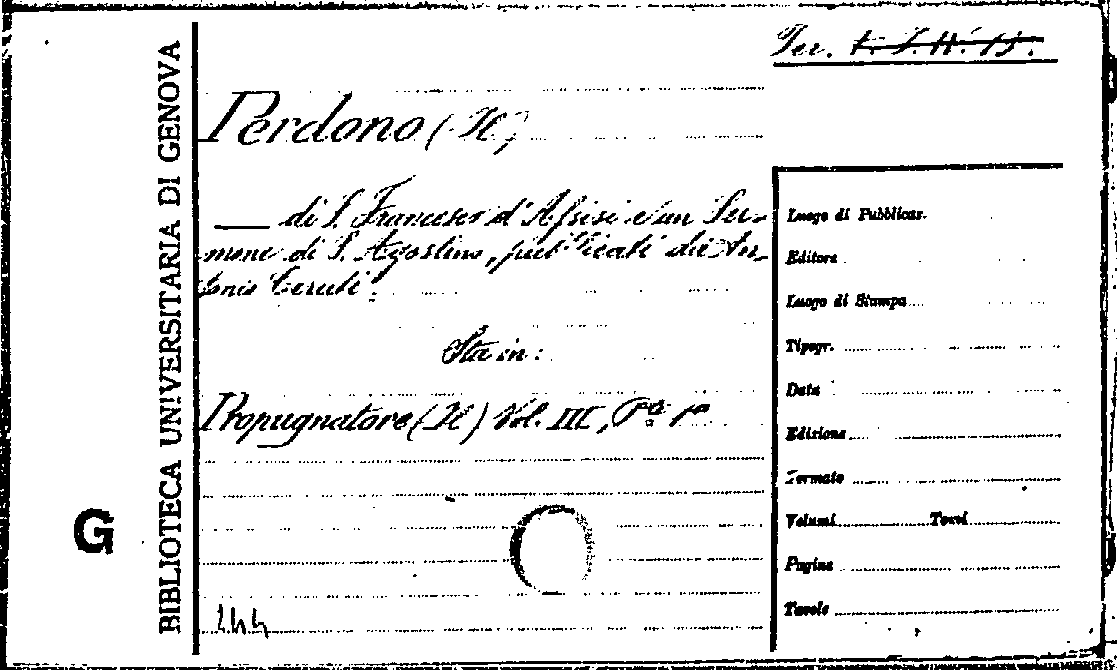 Per. V. I. II. 15.
Perdono (Il)
— di S. Francesco d'Assisi e un Ser-
mone di S. Agostino, pubblicati da An-
tonio Ceruti.
Sta in:
Propugnatore (Il) Vol. III, Pª 1ª
144
G
BIBLIOTECA UNIVERSITARIA DI GENOVA
Luogo di Pubblicaz.
Editore
Luogo di Stampa
Tipogr.
Data
Edizione
Formato
Volumi Tomi
Pagine
Tavole